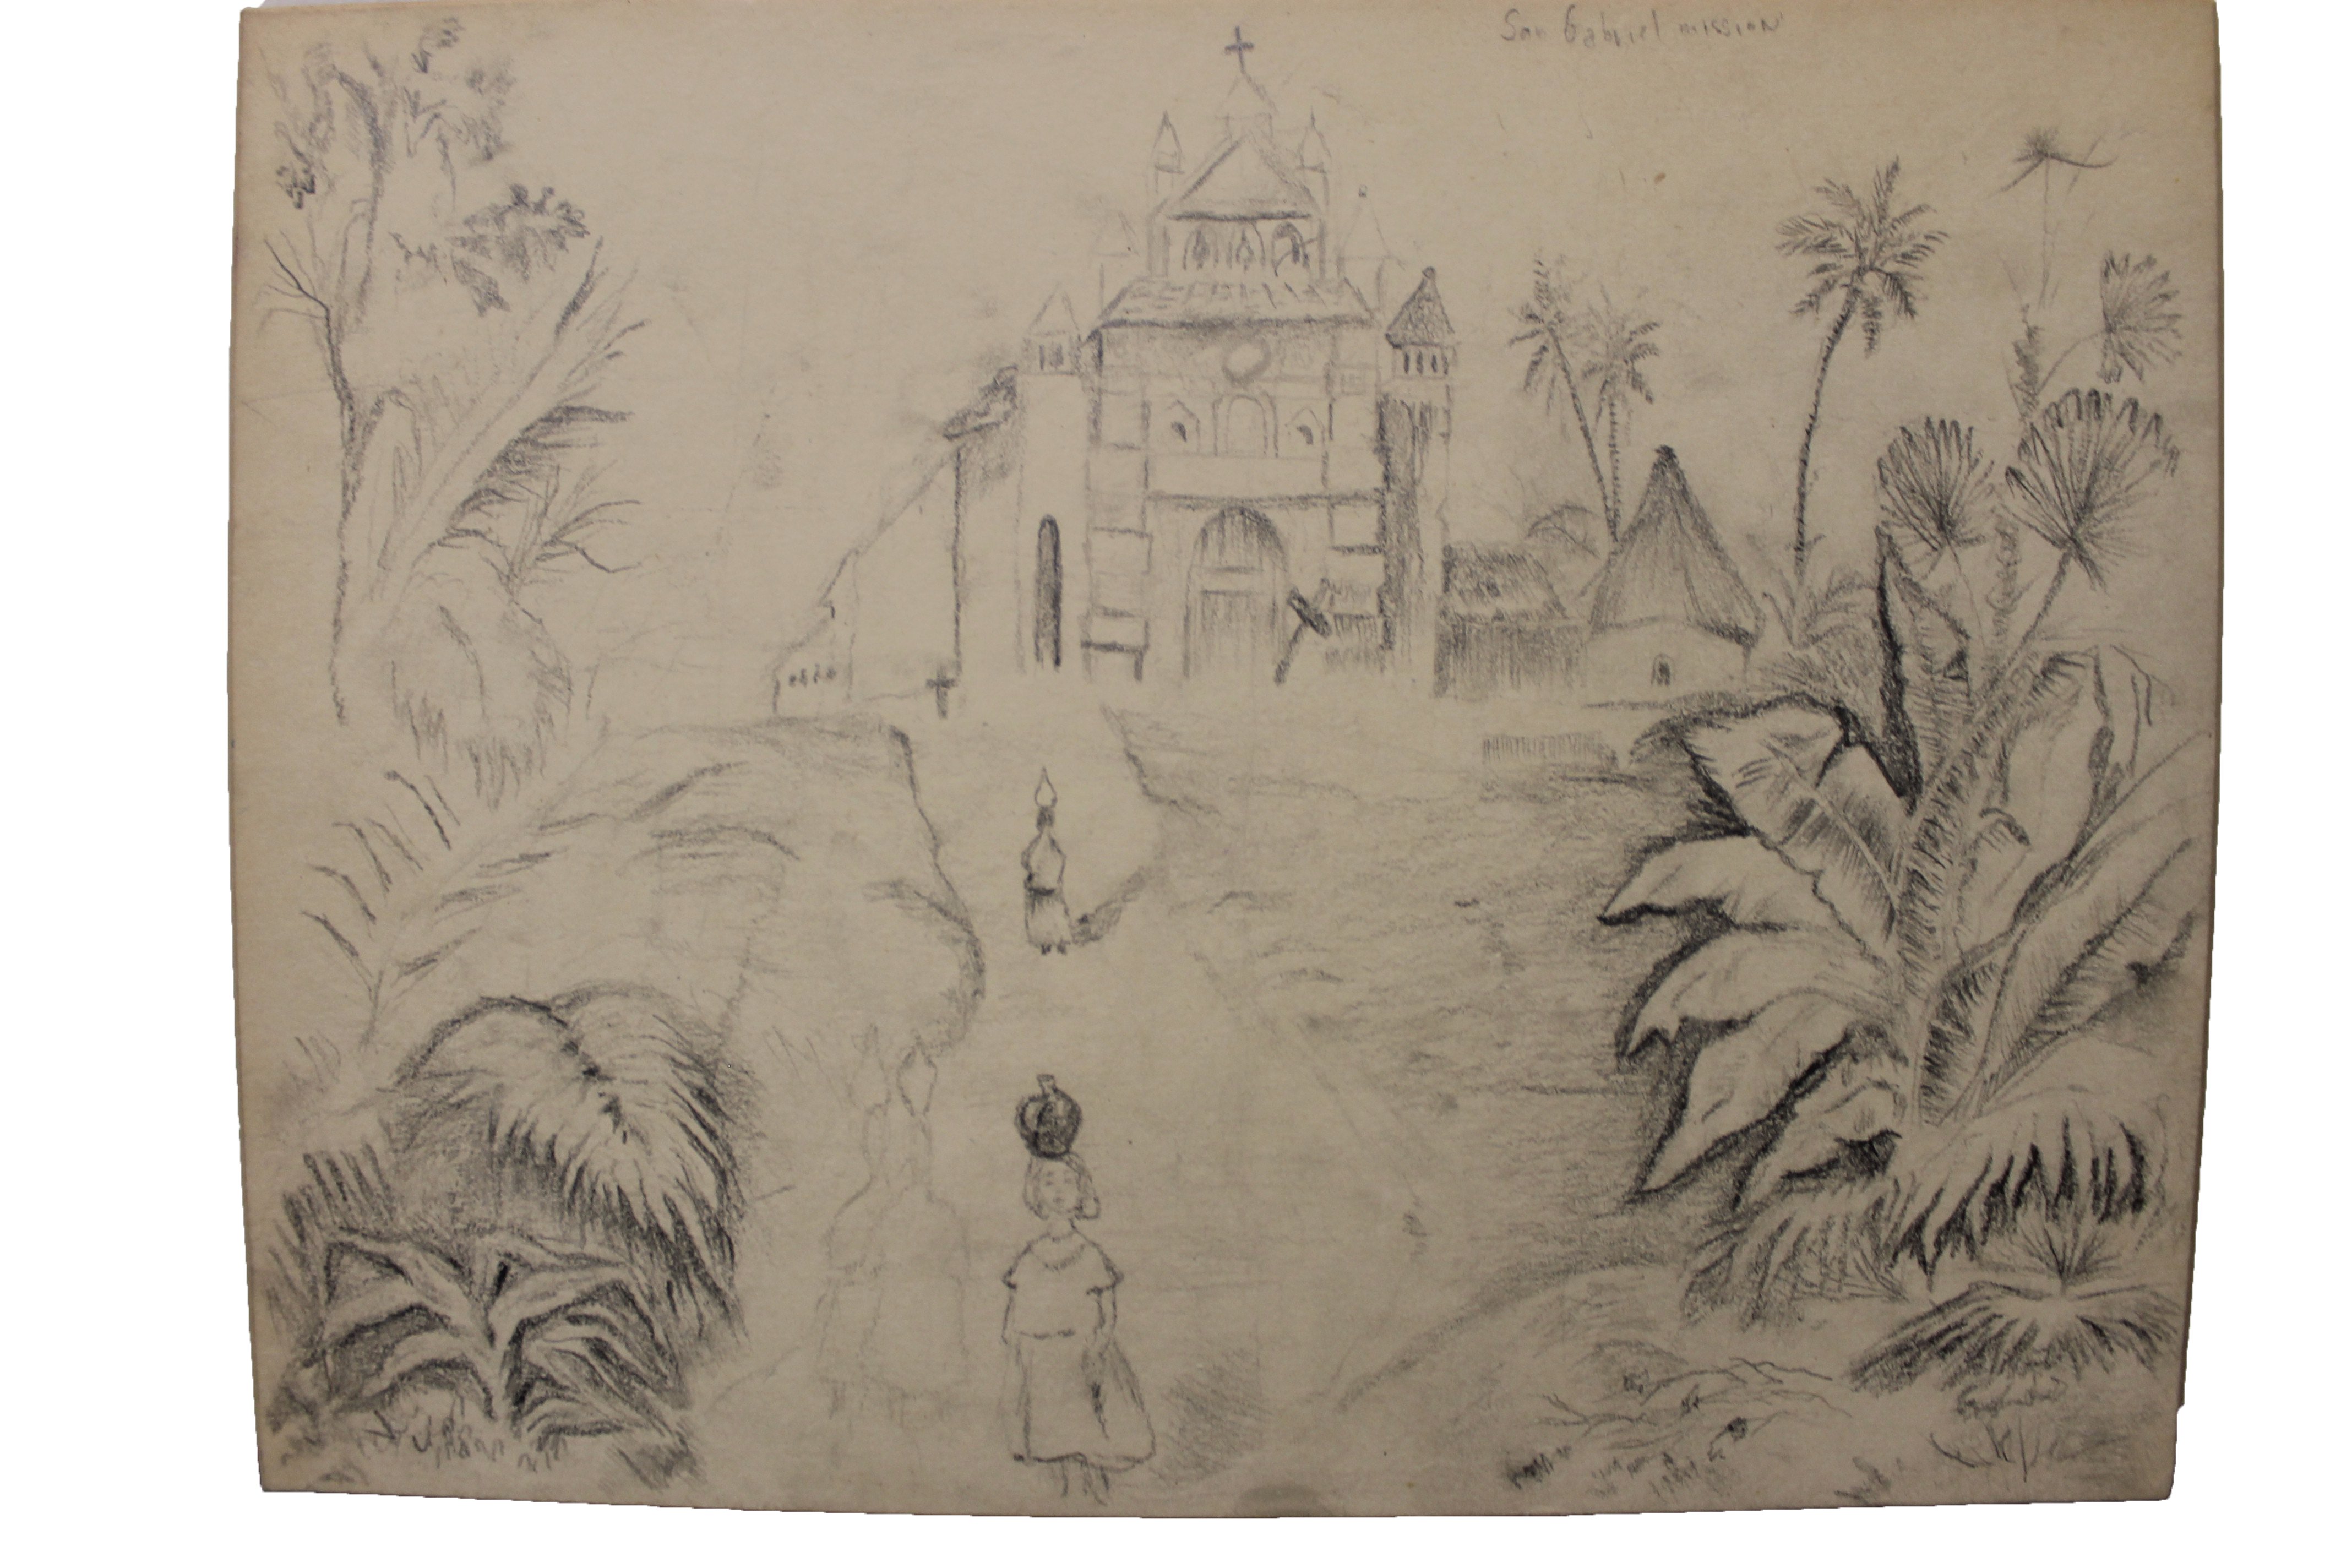 San Gabriel mission